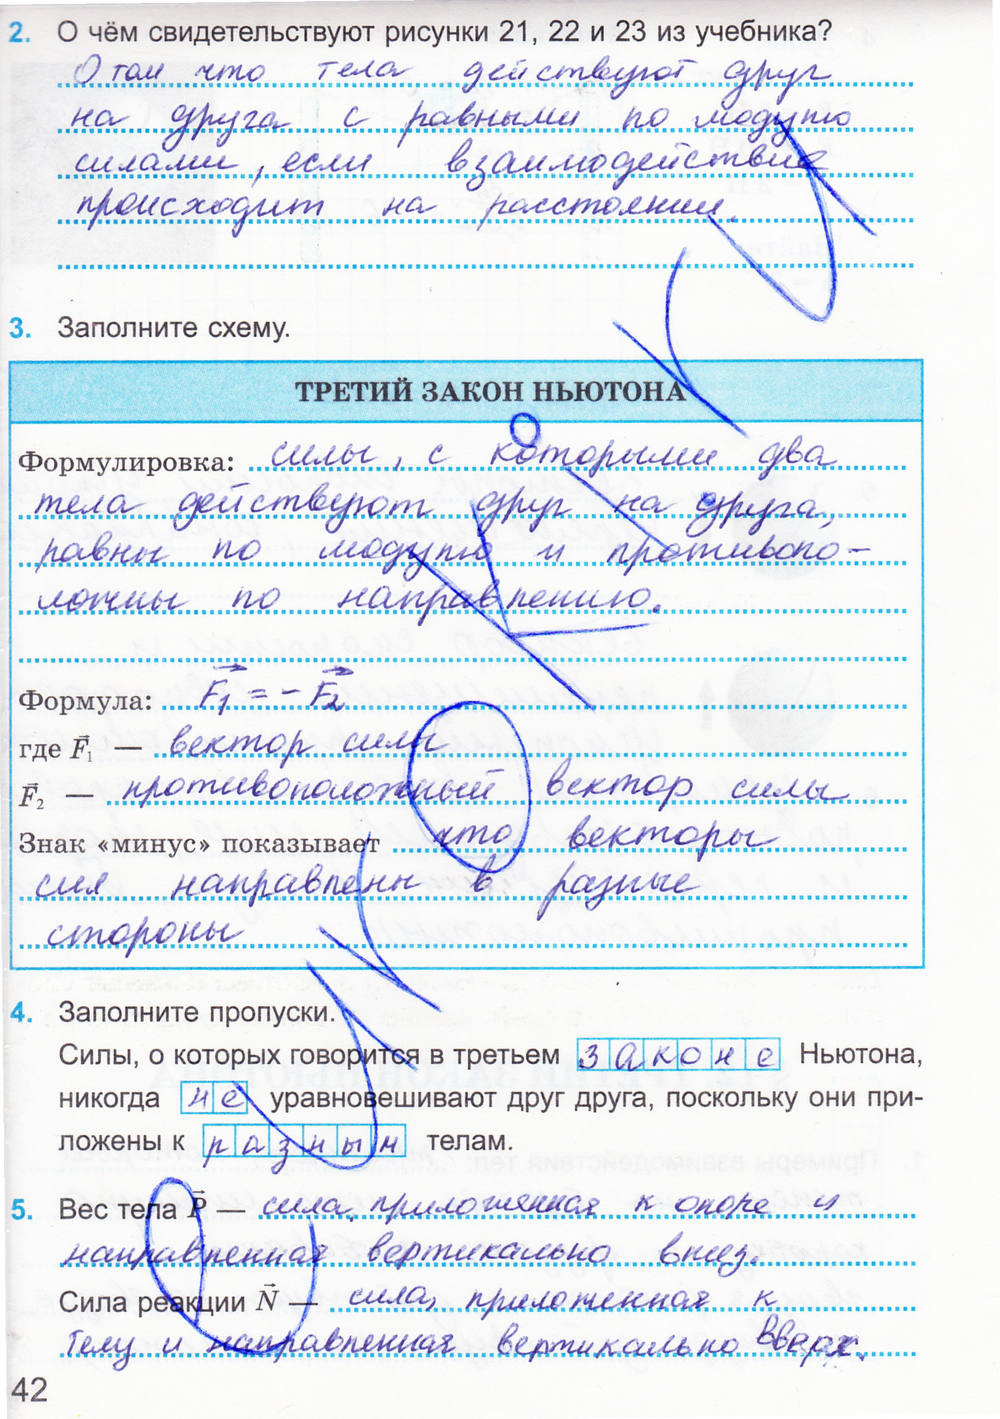 2. О чём свидетельствуют рисунки 21, 22 и 23 из учебника?
О том что тела действуют друг
на друга с равными по модулю
силами, если взаимодействие
происходит на расстоянии.
3. Заполните схему.
ТРЕТИЙ ЗАКОН НЬЮТОНА
Формулировка: силы, с которыми два
тела действуют друг на друга,
равны по модулю и противопо-
ложны по направлению.
Формула: F₁ = - F₂
где F₁ — вектор силы
F₂ — противоположный вектор силы
Знак «минус» показывает что векторы
сил направлены в разные
стороны
4. Заполните пропуски.
Силы, о которых говорится в третьем законе Ньютона,
никогда не уравновешивают друг друга, поскольку они при-
ложены к разным телам.
5. Вес тела P — сила, приложенная к опоре и
направленная вертикально вниз.
Сила реакции N — сила, приложенная к
телу и направленная вертикально вверх.
42